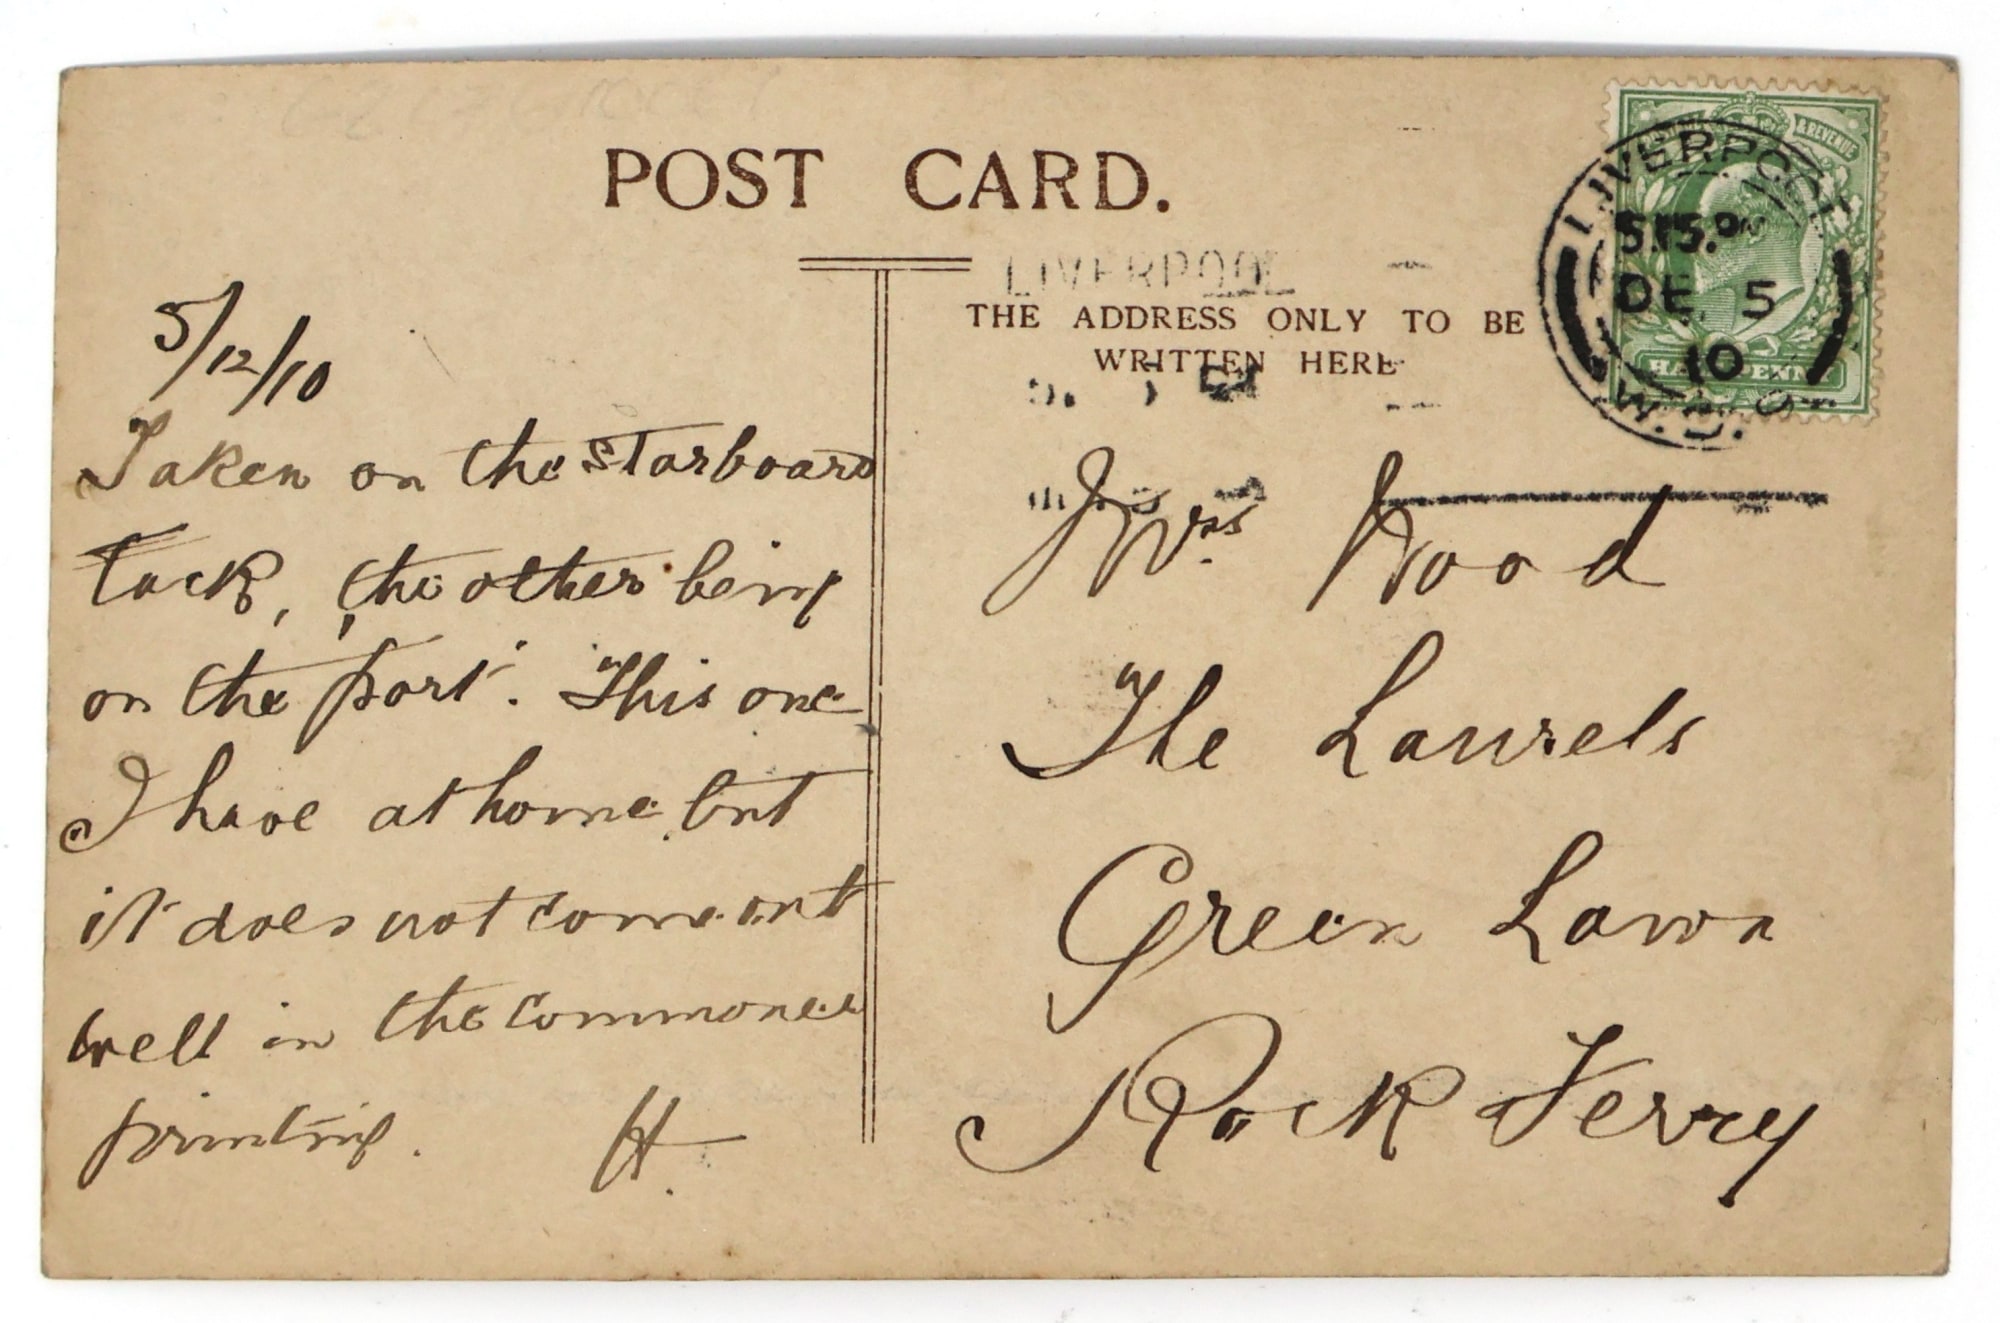 POST CARD.
THE ADDRESS ONLY TO BE
WRITTEN HERE
LIVERPOOL
5.15 P
DE 5
10
& REVENUE
HALFPENNY
LIVERPOOL
5/12/10
Taken on the starboard
tack, the other being
on the port. This one
I have at home but
it does not come out
well in the commoner
printing. H.
Mrs. Wood
The Laurels
Green Lawn
Rock Ferry